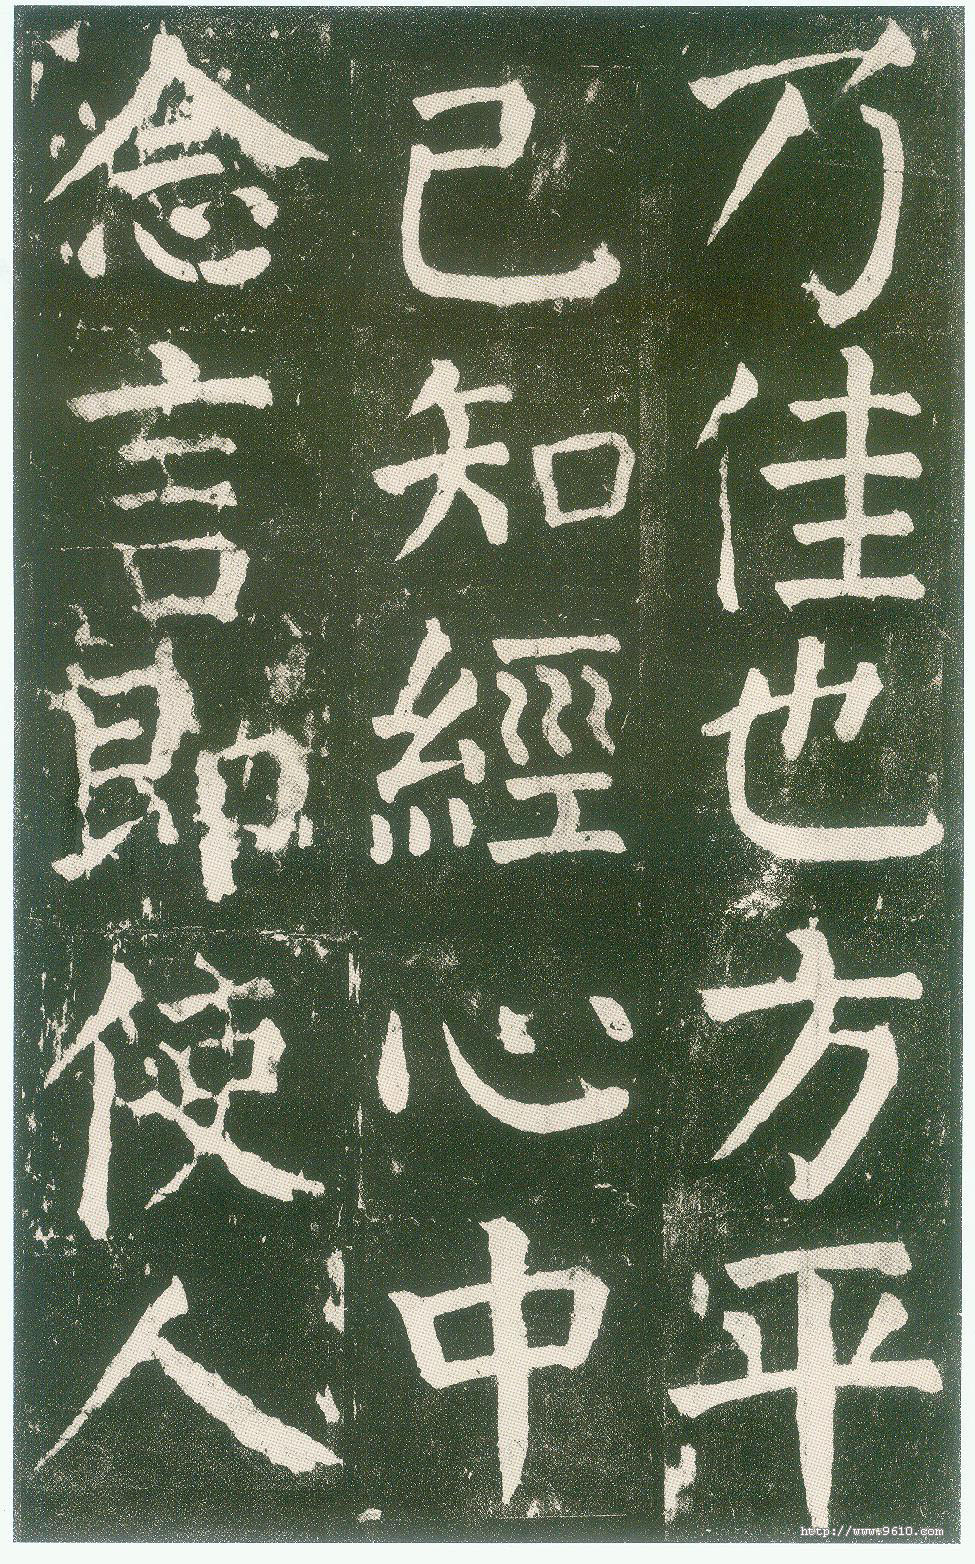 乃佳也方平
己知經心中
念言即使人
http://www.9610.com